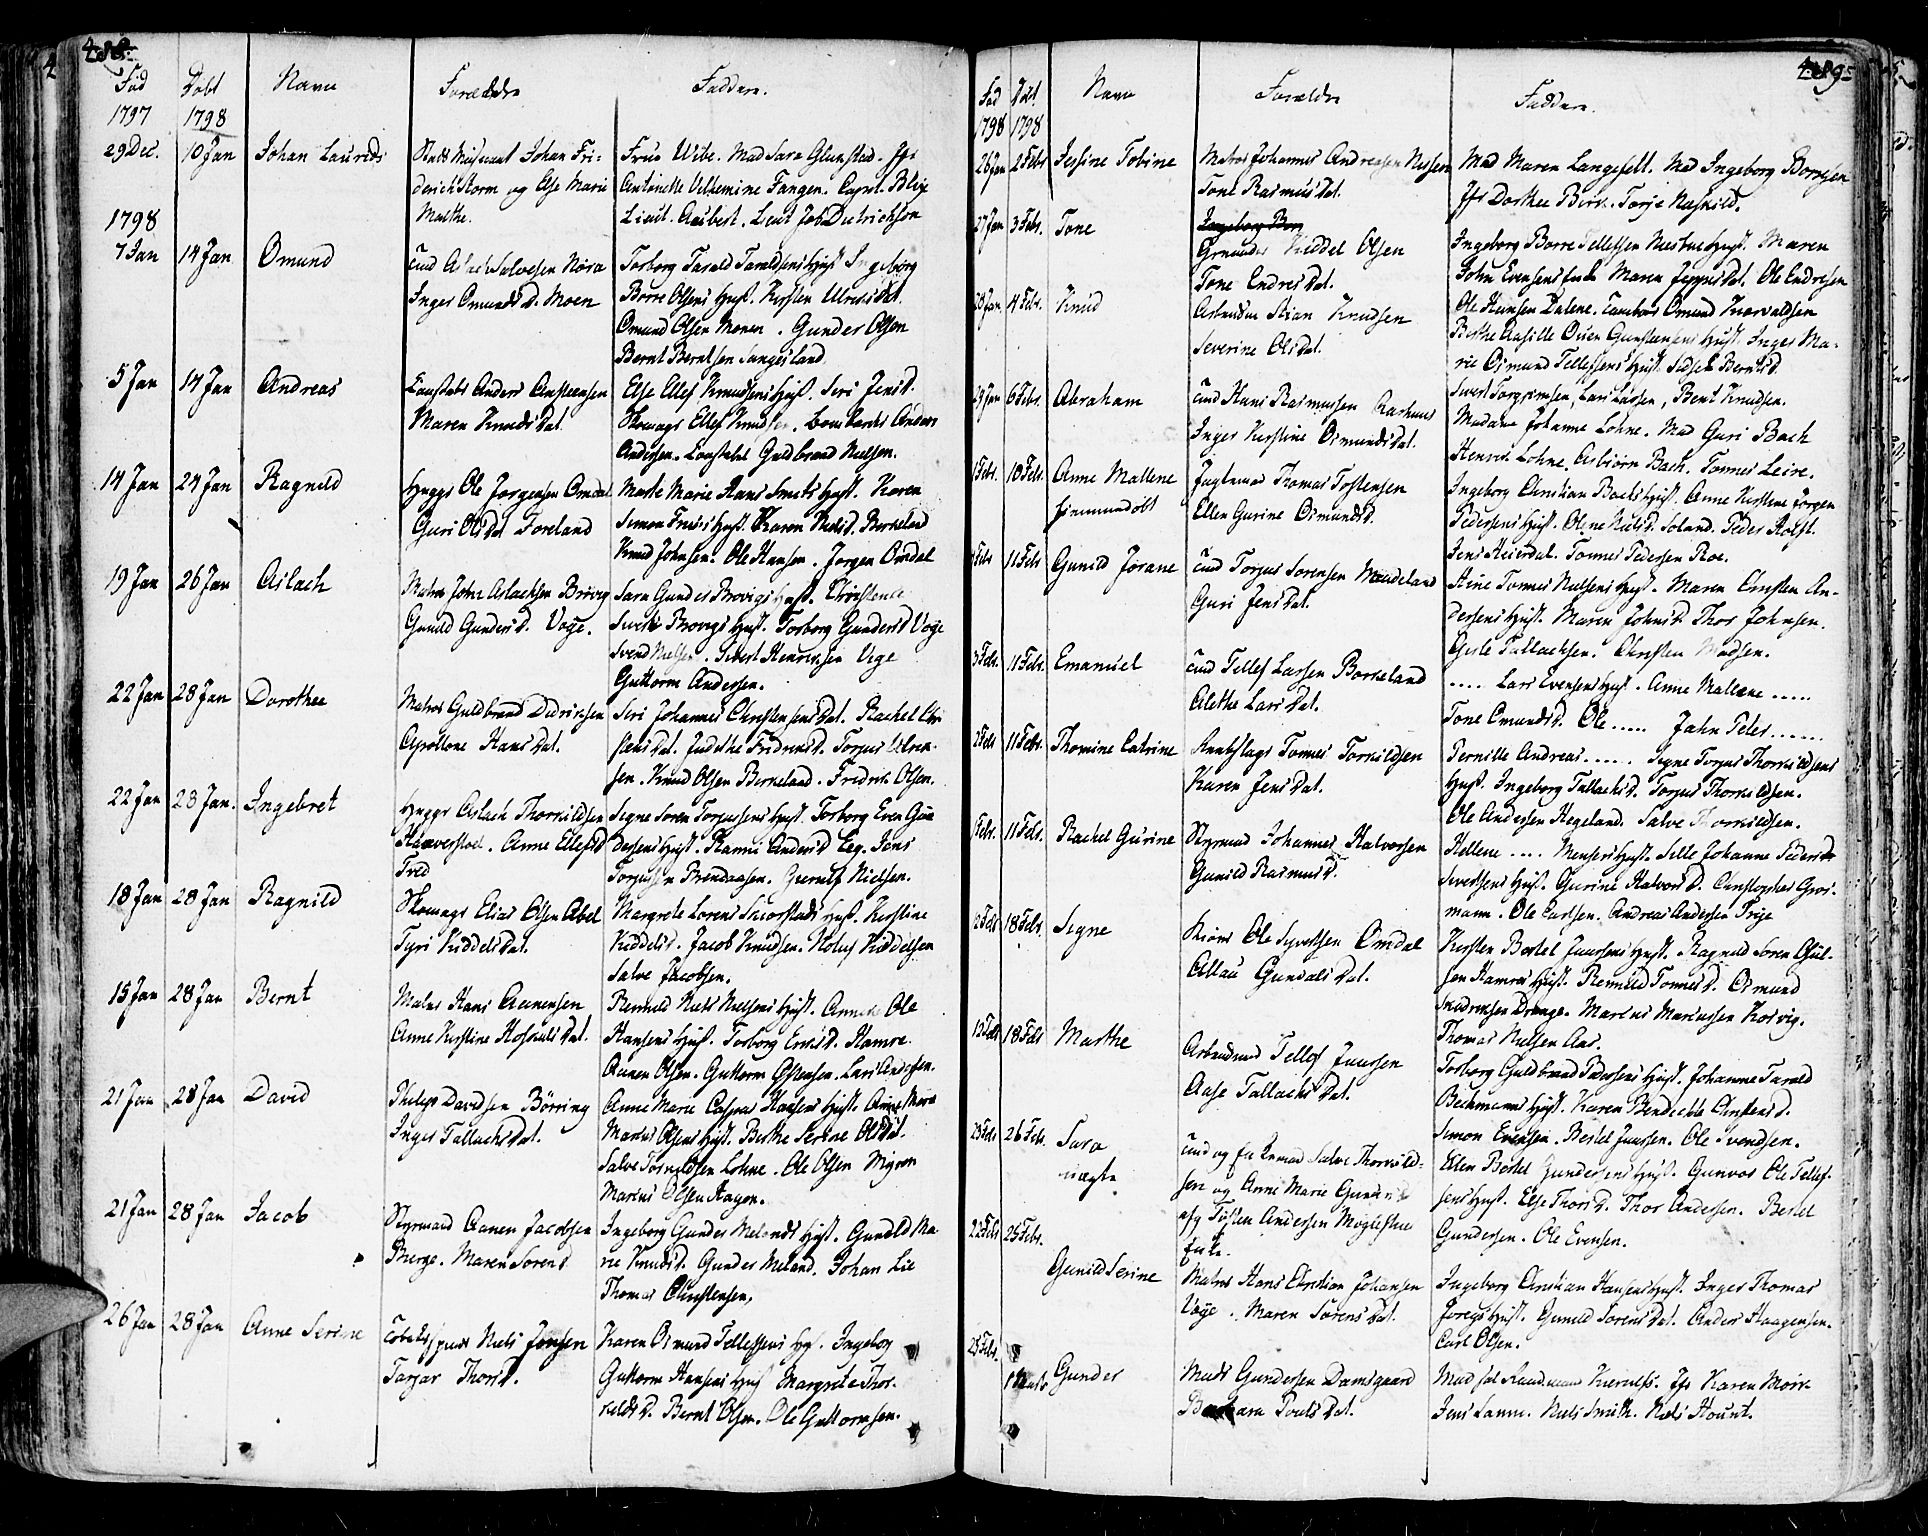 488.
Fød Døbt Navn Forældre Faddere.
1797 1798
29 Dec. 10 Jan Johan Laurids Stads Musicant Johan Fri-
derich Storm og Else Marie
Malthe.
Frue Wibe. Mad Sara Glunstad. Jfr
Antonette Velhemine Fangen. Capt. Blix
Lieut. Aubert. Lieut Joh Diedrichson
1798
7 Jan 14 Jan Omund Aslach Salvesen Nøra
Inger Omunds D. Moen
Torborg Tarald Taraldsens Hust. Ingeborg
Børre Olsens Hust. Kirsten Ulrics Dat.
Omund Olsen Monen. Gunder Olsen
Bernt Berntsen Sangesland
5 Jan 14 Jan Andreas Constabl Anders Ansteensen
Maren Knuds Dat.
Else Ellef Knudsens Hust. Siri Jens D.
Skomagr Ellef Knudsen. Bombarder Anders
Andersen. Constabel Guldbrand Nielsen.
14 Jan 24 Jan Ragnild Hyggr Ole Jørgensen Omdal
Guri Ols Dat Foreland
Marte Marie Hans Smeds Hust. Karen
Simon Friises Hust. Karen Niels D. Birkeland
Knud Johnsen. Ole Hansen. Jørgen Omdal
19 Jan 26 Jan Aslach Matros John Aslachsen Brøvig
Gunild Gunders D. Voge.
Sara Gunder Brøvigs Hust. Christence
Sivert Brovigs Hust. Torborg Gunders D Voge
Svend Nielsen. Sivert Henrichsen Vege
Guttorm Andersen.
22 Jan 28 Jan Dorothea Matros Guldbrand Didrichsen
Apollone Hans Dat.
Siri Johannes Christensens Dat. Rachel Chri
stens Dat. Judithe Fridrics D. Torjus Ulrich-
sen. Knud Olsen Berkeland. Fredrik Olsen.
22 Jan 28 Jan. Ingebret Hyggr Aslach Thorkildsen
Haaverstad. Anne Ellefs D
Tved
Signe Søren Torjussens Hust. Torborg Even Gun
dersens Hust. Ranni Anders D Eeg. Jens
Torjussen Brendaasen. Gierulf Nielsen.
18 Jan 28 Jan Ragnild Skomagr Elias Olsen Abel
Tyri Kiddels Dat.
Margrete Lorens Skiorstads Hust. Kirstine
Kiddels D. Jacob Knudsen. Roluf Kiddelsen
Salve Jacobsen.
15 Jan 28 Jan Bernt Matros Hans Aanensen
Anne Kirstine Hofgaards Dat.
Remmild Niels Nielsens Hust. Anne Ole
Hansens Hust. Torborg Erics D. Hamre.
Aanen Olsen. Guttorm Ostensen. Lars Andersen.
21 Jan 28 Jan David Philip Davidsen Børring
Inger Tallachs Dat.
Anne Marie Caspar Hansens Hust. Anne Maria
Marius Olsens Hust. Berthe Serine Ols Dat.
Salve Torkildsen Lohne. Ole Olsen Migron
Marius Olsen Hagen.
21 Jan 28 Jan Jacob Styrmand Aanen Jacobsen
Berge. Maren Sørens D.
Ingeborg Gunder Melands Hust. Gunild Ma-
rie Knuds D. Gunder Meland. Johan Lie
Thomas Christensen.
26 Jan 28 Jan Anne Serine Niels Jensen
Tarjer Thors D.
Karen Osmund Tellefsens Hst. Ingeborg
Guttorm Hansens Hust Margrete Thor-
kilds D. Bernt Olsen. Ole Guttormsen.
489
Fød Døbt Navn Forældre Faddere.
1798 1798
26 Jan 2 Febr Jessine Tobine Matros Johannes Andreasen Nessen
Tone Rasmus Dat.
Mad Maren Langefelt. Mad Ingeborg Borresen
Jfr Dorthea Birk. Torje Naskild.
27 Jan 3 Febr. Tone Grmunder Kiddel Olsen
Tone Endres Dat.
Ingeborg Borre Tellefsen Nerbue Hust. Maren
John Evensens Enke Maren Jeppes Dat. Ole Endresen
Ole Hansen Dalene. Tambour Omund Haavaldsen
28 Jan 4 Febr. Knud Arbmdm Stian Knudsen
Severine Ols Dat.
Berthe Aasille Osuen Gunstensens Hust. Inger Ma-
rie Osmund Tellefsens Hust. Sidsel Bernts D.
Sivert Torgrimsen, Lars Larsen, Bent Knudsen.
29 Jan 6 Febr. Abraham Hans Rasmussen Aarhuus
Inger Kirstine Osmunds Dat.
Madame Johanne Lohne. Mad Guri Bach
Henrik Lohne. Asbiørn Bach. Tonnes Leire.
1 Febr. 10 Febr. Anne Mallene
hiemmedøbt Jugtmand Thomas Tostensen
Ellen Gurine Osmunds D.
Ingeborg Christian Bachs Hust. Anne Kirstine Jørgen
Pedersens Hust. Olene Niels D. Soland. Peder Holst.
Jens Heierdal. Tonnes Pedersen Roe.
Febr 11 Febr Gunild Jorane Torjus Sørensen Mandeland
Guri Jens Dat.
Stine Tonnes Nielsens Hust. Maren Christen An-
dersens Hust. Maren Johns D. Thor Johnsen.
Gisle Tallachsen. Christen Madsen.
3 Febr. 11 Febr. Emanuel Tellef Larsen Borkeland
Alethe Lars Dat.
..... Lars Evensens Hust. Anne Mallene .....
Tone Omunds D. Ole ..... Jahn Peter ......
2 Febr 11 Febr. Thomine Catrine Tonnes Torkildsen
Karen Jens Dat.
Pernille Andreas ...... Signe Torjus Thorkildsens
Hust. Ingeborg Tallachs D. Torjus Thorkildsen.
Ole Andersen Hegeland. Salve Thorkildsen.
Febr. 11 Febr. Rachel Gurine Styrmand Johannes Halvorsen
Gunild Rasmus D.
Hellene .... Monsens Hust. Sille Johanne Peder
Sivertsens Hust. Gurine Halvors D. Christopher Gros-
mann. Ole Carlsen. Andreas Andersen Trije
12 Febr 18 Febr. Signe Ole Syvertsen Omdal
Allau Gundals Dat.
Kirsten Bertel Juursens Hust. Ragnild Søren Gul-
sen Hamres Hust. Remmild Tonnes D. Osmund
Didriksen Drange. Marcus Marcussen Kosvig.
Thomas Nielsen Aas.
13 Febr 18 Febr Marthe Arbmdmand Tellef Juursen
Aase Tallachs Dat.
Torborg Guldbrand Pedersens Hust. Johanne Tarald
Bechmanns Hust. Karen Bendicthe Christens D.
Simon Evensen. Bertel Juursen. Ole Svendsen.
25 Febr 26 Febr. Sara
uægte og Enkemand Salve Thorkild-
sen og Anne Marie Gunders D
afg Tosten Andersen Møglestue
Enke.
Elen Bertel Gundersens Hust. Gunvor Ole Tellef-
sens Hust. Else Thors D. Thor Andersen. Bertel
Gundersen. Ole Evensen.
22 Febr 25 Febr.
Gunild Serine Matros Hans Christian Johansen
Voge. Maren Sørens Dat.
Ingeborg Christian Hansens Hust. Inger Thomas
Joregs Hust. Gunild Sørens Dat. Anders Haagensen.
Carl Olsen.
25 Febr.
1 Marts Gunder Mads Gundersen Damsgaard
Barbara Povels Dat.
Mad sal Raadmand Kierulfs. Jfr Karen Mørk
Jens Lanne. Niels Smith. Niels Hount.